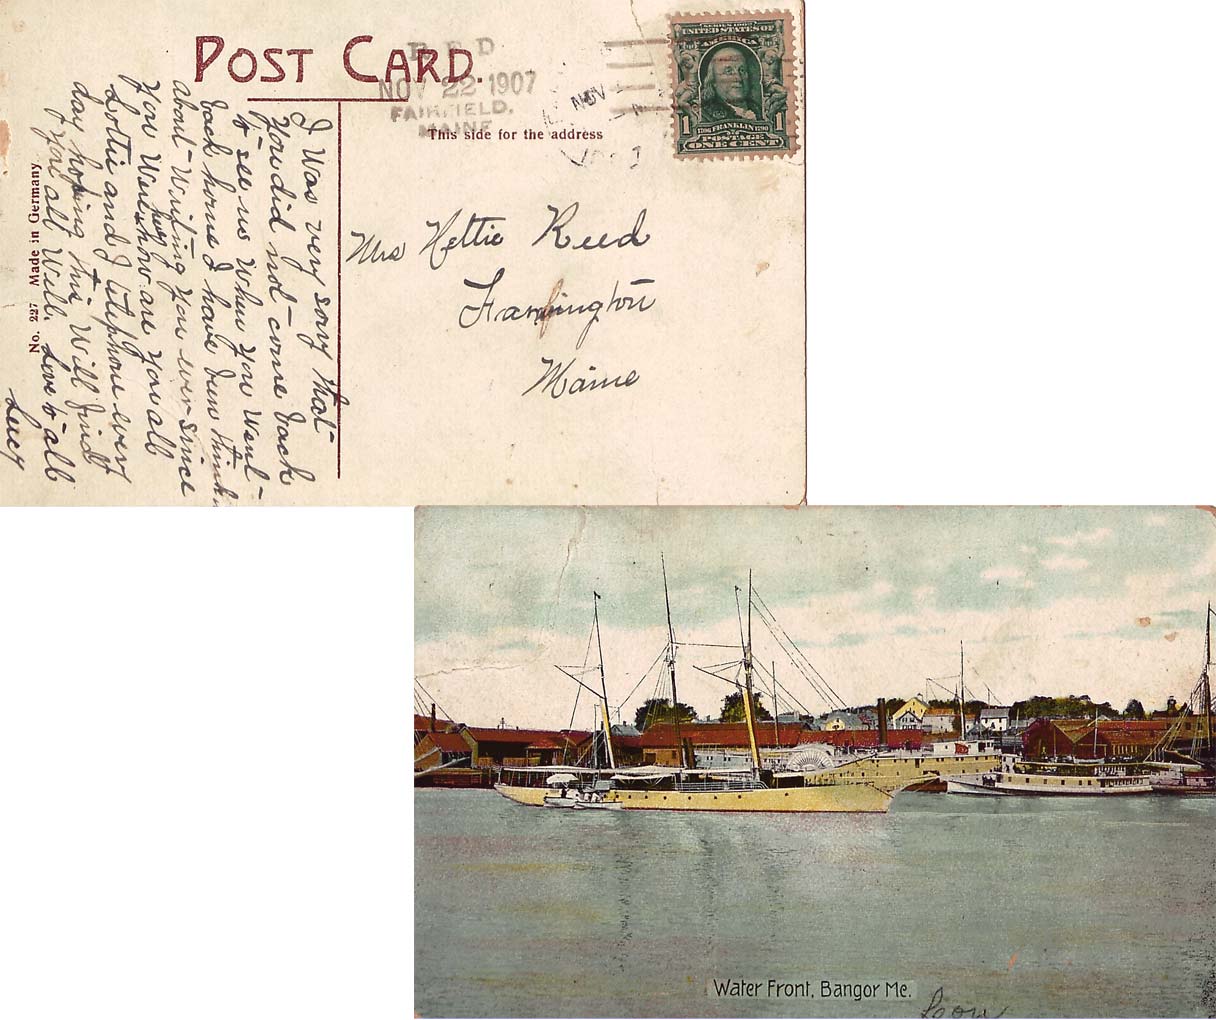 POST CARD.
R F D
NOV 22 1907
FAIRFIELD.
MAINE
NOV
SERIES 1902
UNITED STATES OF
AMERICA
1 1706 FRANKLIN 1790 1
POSTAGE
ONE CENT
This side for the address
Mrs Hettie Reed
Farmington
Maine
I Was very sorry that
You did not come back
to see us When you Went
back home I have been thinking
about Writing you ever since
You Went how are You all
Lottie and I telephone every
day hoping this Will find
you all Well. Love to all
Lucy
No. 227 Made in Germany
Water Front, Bangor Me.